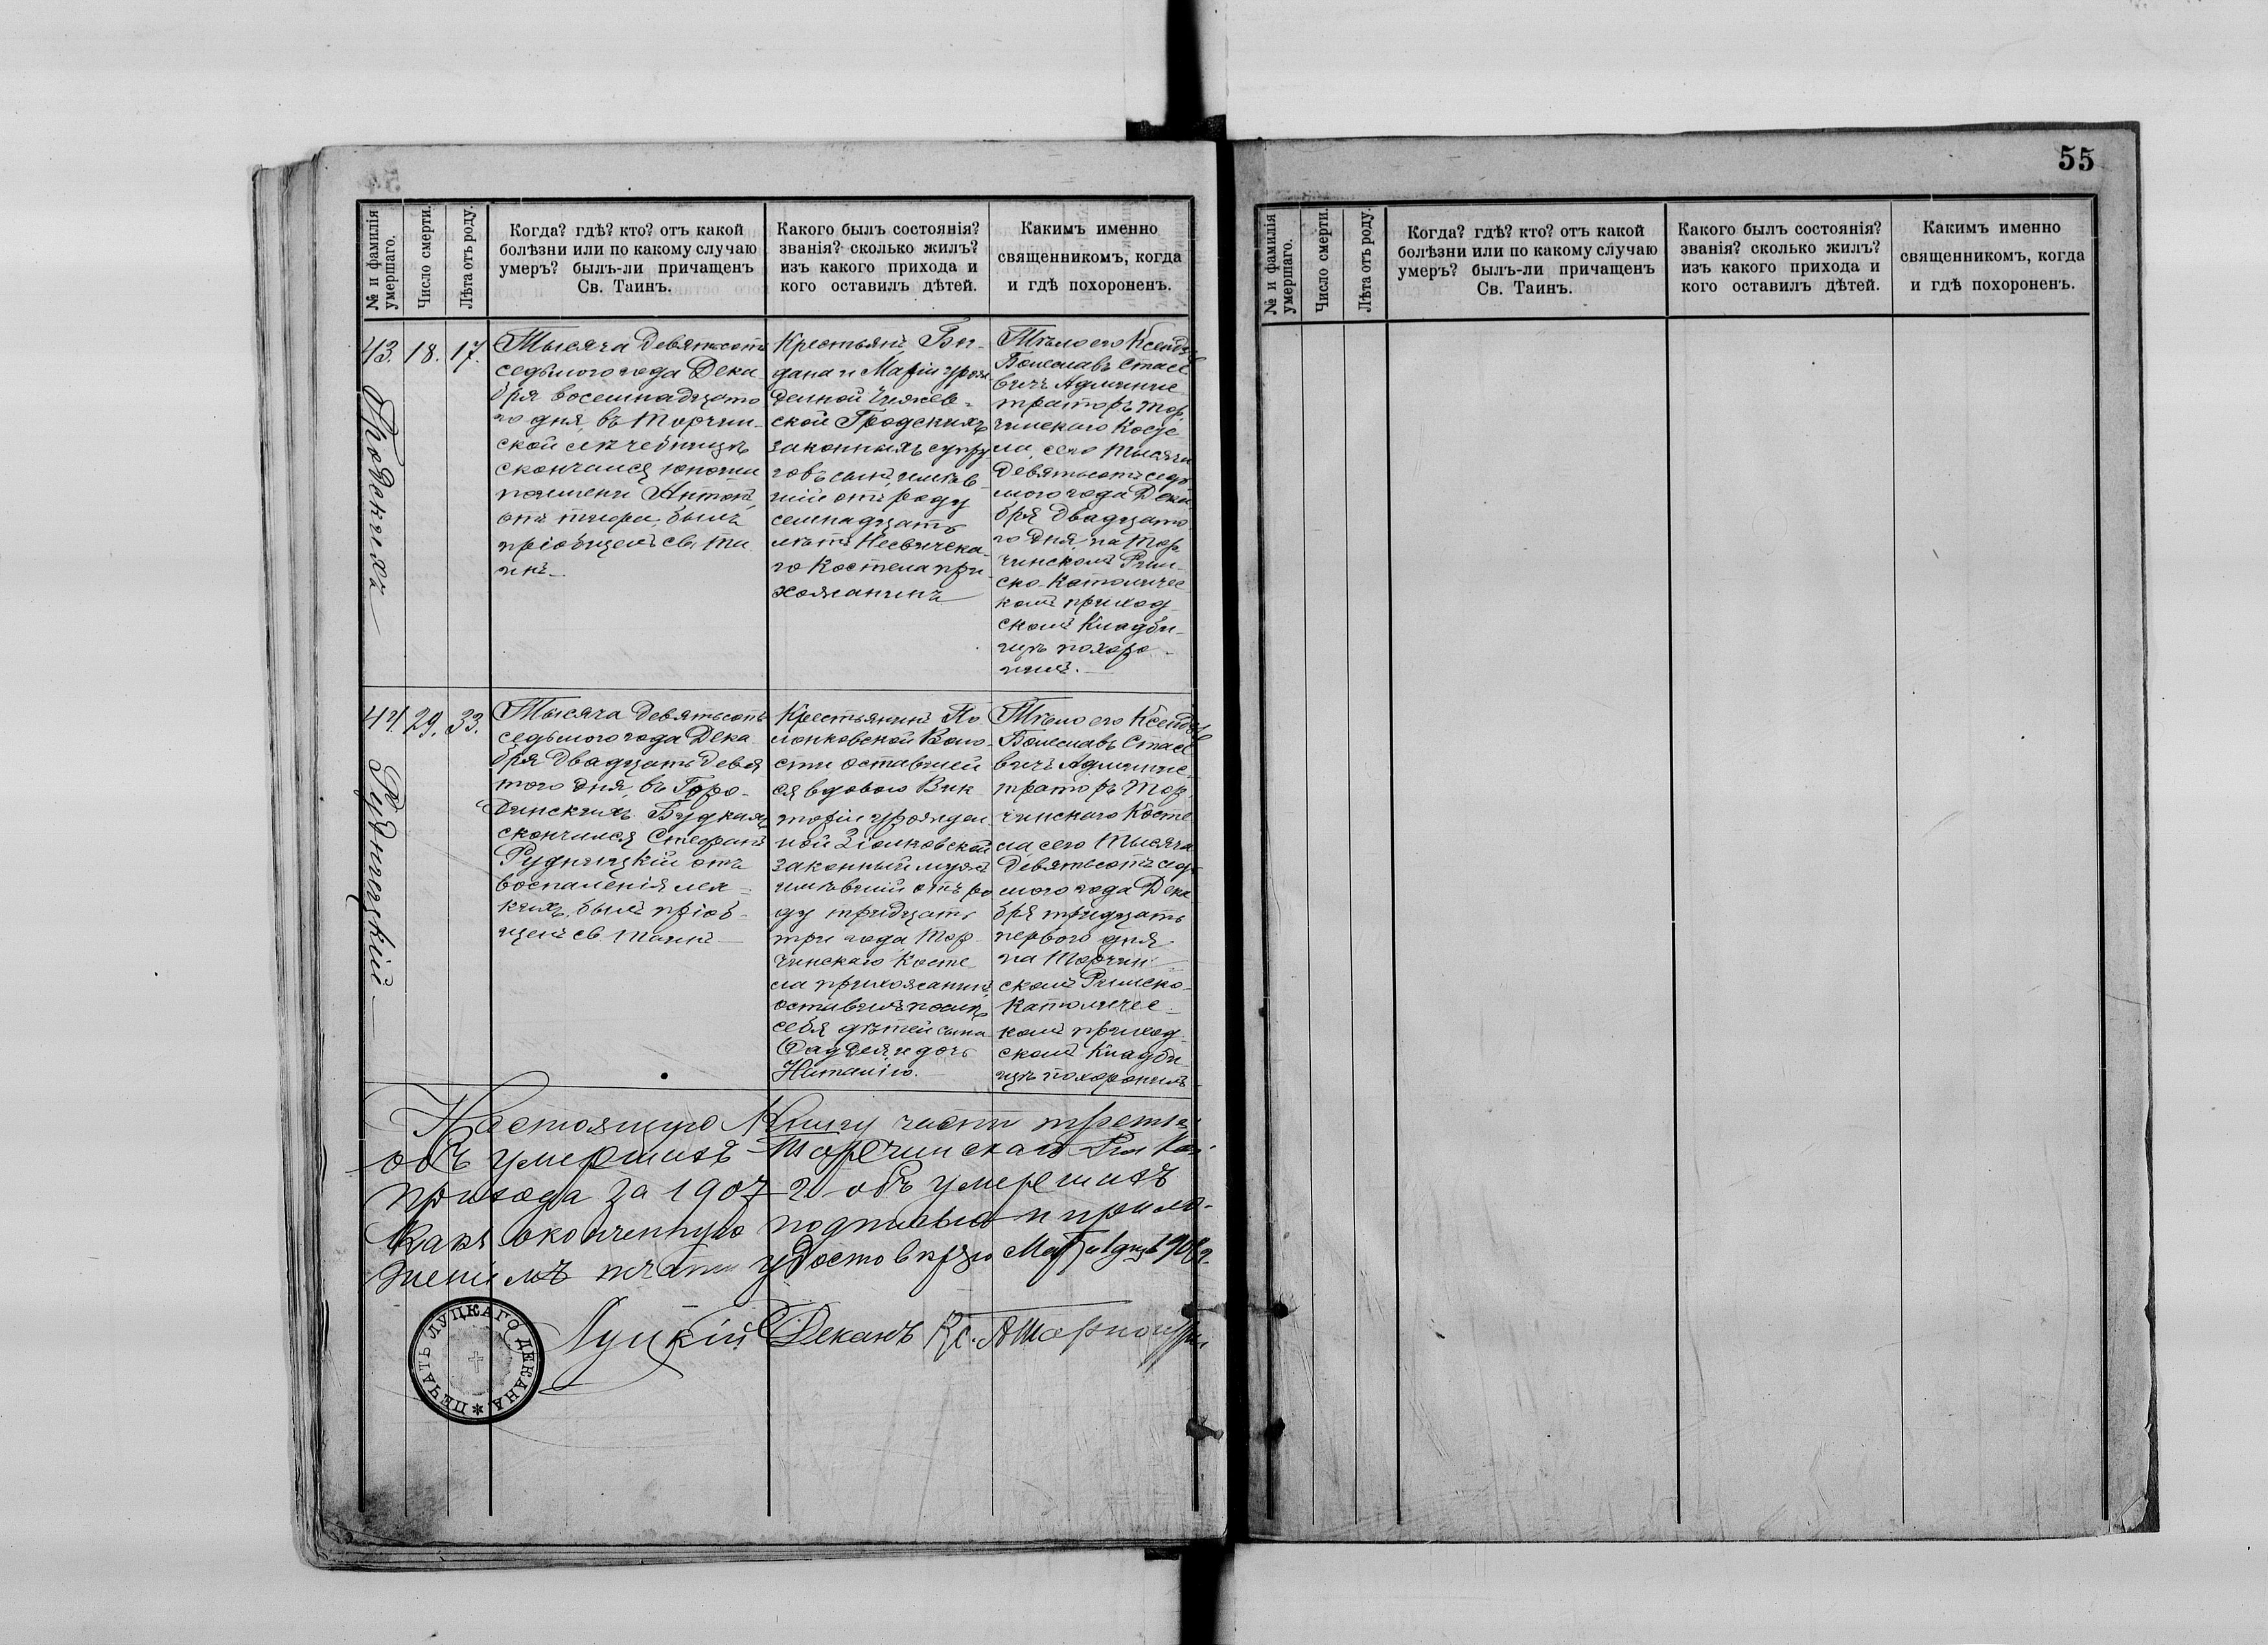 55
№ и фамилія
умершаго.
Число смерти.
Лѣта отъ роду.
Когда? гдѣ? кто? отъ какой
болѣзни или по какому случаю
умеръ? былъ-ли причащенъ
Св. Таинъ.
Какого былъ состоянія?
званія? сколько жилъ?
изъ какого прихода и
кого оставилъ дѣтей.
Какимъ именно
священникомъ, когда
и гдѣ похороненъ.
43.
18.
17.
Тысяча девятьсотъ
седьмого года Дека-
бря восемнадцато
го дня, въ Торчин-
ской лѣчебницѣ
скончался юноша
именемъ Антонъ
отъ тифа, былъ
пріобщенъ св. Та
инъ.
Крестьянъ Бог-
дана и Маріи урож
денной
ской Гродскихъ
законныхъ супру
говъ сынъ, имѣв-
шій отъ роду
семнадцать
лѣтъ Несвичска-
го Костела при
хожанинъ
Тѣло его Ксендзъ
Болеславъ Стасе
вичъ Админис
траторъ Тор
чинскаго Косте
ла, сего Тысяча
девятьсотъ седь
мого года Дека
бря двадцато
го дня, на Тор
чинскомъ Рим-
ско-Католичес
комъ приход-
скомъ Кладби-
щѣ похоро-
нилъ.
44.
29.
33.
Рудницкій
Тысяча девятьсотъ
седьмого года Дека
бря двадцать девя
того дня, въ Горо-
динскихъ Будкахъ
скончался Стефанъ
Рудницкій отъ
воспаленія лег-
кихъ, былъ пріоб-
щенъ св. Таинъ
Крестьянинъ По
лонковской Воло-
сти оставшей
ся вдовою Вик
торіи урожден
ной Зіолковской
законный мужъ
имѣвшій отъ ро
ду тридцать
три года, Тор-
чинскаго Косте
ла прихожанинъ,
оставилъ послѣ
себя дѣтей сына
Фаддея и дочь
Наталію.
Тѣло его Ксендзъ
Болеславъ Стасе
вичъ Админис
траторъ Тор
чинскаго Косте
ла сего Тысяча
девятьсотъ седь
мого года Дека
бря тридцать
перваго дня
на Торчин
скомъ Римско-
Католичес-
комъ приход
скомъ Кладби
щѣ похоронилъ
Настоящую Книгу части третьей
объ умершихъ Торчинскаго Рим Кат
прихода за 1907 г объ умершихъ
какъ оконченную подписью и прило-
женіемъ печати удостовѣряю
Луцкій Деканъ Кс.
ПЕЧАТЬ ЛУЦКАГО ДЕКАНА
№ и фамилія
умершаго.
Число смерти.
Лѣта отъ роду.
Когда? гдѣ? кто? отъ какой
болѣзни или по какому случаю
умеръ? былъ-ли причащенъ
Св. Таинъ.
Какого былъ состоянія?
званія? сколько жилъ?
изъ какого прихода и
кого оставилъ дѣтей.
Какимъ именно
священникомъ, когда
и гдѣ похороненъ.